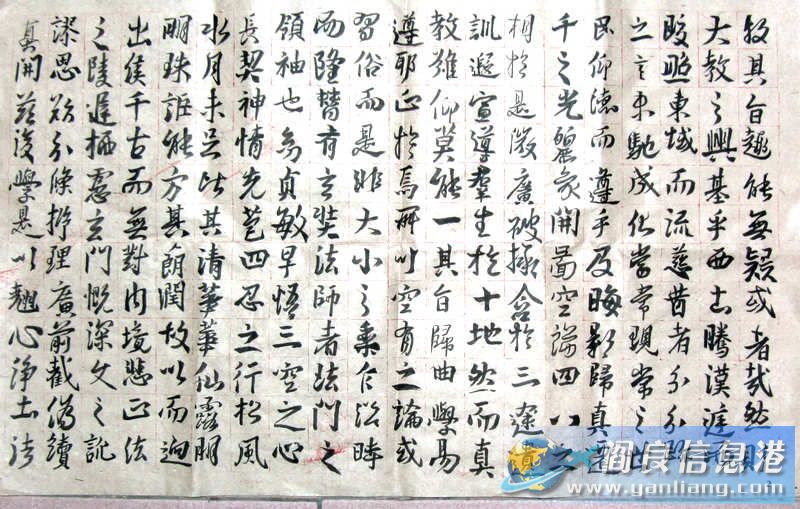 投其旨趣能無疑或者哉然則
大教之興基乎西土騰漢庭而
皎照東域而流慈昔者分跡
之言未馳成化當常現常之世
民仰德而遵乎及晦影歸真遷
千之光麗象開圖空端四八之
相於是微廣被拯含於三途遺
訓遐宣導羣生於十地然而真
教難仰莫能一其旨歸曲學易
遵邪正於焉所以空有之論或
習俗而是非大小之乘乍沿時
而隆替有玄奘法師者法門之
領袖也幼貞敏早悟三空之心
長契神情先苞四忍之行松風
水月未足比其清華華仙露明
明珠詎能方其朗潤故以而迥
出隻千古而無對內境悲正法
之陵遲栖慮玄門慨深文之訛
謬思欲分條析理廣前截偽續
真開茲後學是以翹心淨土法
阎良信息港
www.yanliang.com